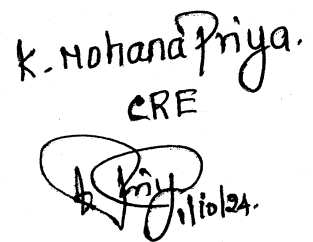 K. Mohana Priya.
CRE
K Priy
1/10/24.